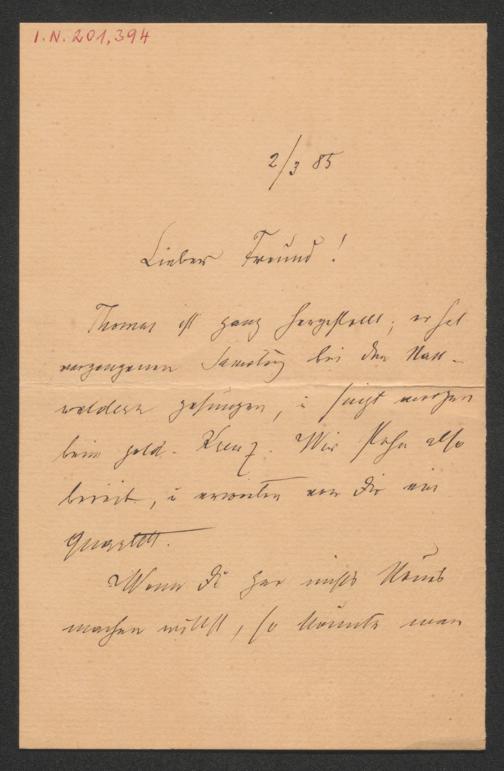 I.N. 201,394
2/3 85
Lieber Freund!
Thomas ist ganz hergestellt; er hat
vergangenen Samstag bei den Nass-
waldern gesungen, u singt morgen
beim gold. Kreuz. Wir stehn also
bereit, u erwarten von Dir ein
Quartett.
Wenn Du gar nichts Neues
machen willst, so könnte man